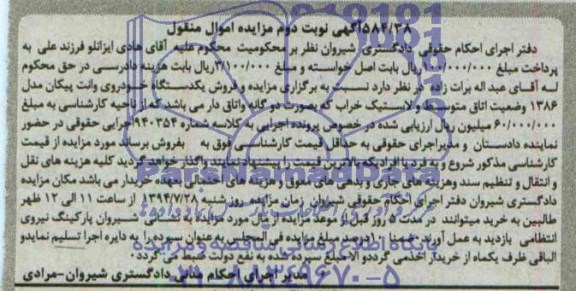 ۵۸۴/۳۸آگهی نوبت دوم مزایده اموال منقول
دفتر اجرای احکام حقوقی دادگستری شیروان نظر بر محکومیت محکوم علیه آقای هادی ایزانلو فرزند علی به
پرداخت مبلغ ۱۰۰/۰۰۰/۰۰۰ریال بابت اصل خواسته و مبلغ ۳/۱۰۰/۰۰۰ریال بابت هزینه دادرسی در حق محکوم
له آقای عبد اله برات زاده در نظر دارد نسبت به برگزاری مزایده و فروش یکدستگاه خودروی وانت پیکان مدل
۱۳۸۶ وضعیت اتاق متوسط و لاستیک خراب که بصورت دو گانه واتاق دار می باشد که از ناحیه کارشناسی به مبلغ
۶۰/۰۰۰/۰۰۰ میلیون ریال ارزیابی شده در خصوص پرونده اجرایی به کلاسه شماره ۹۴۰۳۵۴اجرایی حقوقی در حضور
نماینده دادستان و مدیراجرای حقوقی به حداقل قیمت کارشناسی فوق به بفروش برساند مورد مزایده از قیمت
کارشناسی مذکور شروع و به فرد یا افرادیکه بالاترین قیمت را پیشنهاد نمایند واگذار خواهد گردید کلیه هزینه های نقل
و انتقال و تنظیم سند وهزینه های جاری و بدهی های معوق و هزینه های احتمالی بعهده خریدار می باشد مکان مزایده
دادگستری شیروان دفتر اجرای احکام حقوقی شیروان زمان مزایده روز شنبه ۱۳۹۴/۷/۲۸ از ساعت ۱۱ الی ۱۲ ظهر
طالبین به خرید میتوانند در مدت ۵ روز قبل از موعد مزایده از مال مورد مزایده شیروان پارکینگ نیروی
انتظامی بازدید به عمل آورند ده درصد بهای مزایده فی المجلس به عنوان سپرده را به دایره اجرا تسلیم نمایدو
الباقی ظرف یکماه از خریدار اخذمی گرددو الا مبلغ سپرده شده به نفع دولت ضبط می گردد
مدیر اجرای احکام مدنی دادگستری شیروان-مرادی
ParsNamadData
۰۲۱-۸۸۳۴۹۶۷۰-۵